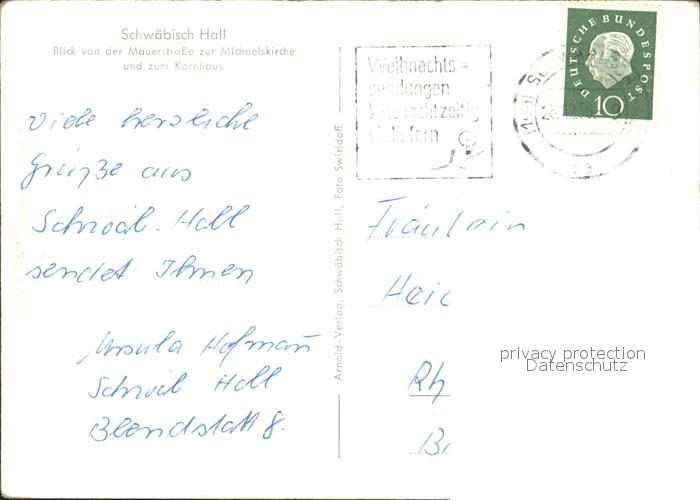 Schwäbisch Hall
Blick von der Mauerstraße zur Michaelskirche
und zum Kornhaus
Viele herzliche
Grüße aus
Schwäb. Hall
sendet Ihnen
Ursula Hofmann
Schwäb Hall
Blendstatt 8.
Arnold-Verlag, Schwäbisch Hall, Foto Swiridoff
Weihnachts=
sendungen
bitte rechtzeitig
einliefern
DEUTSCHE BUNDESPOST
10
Fräulein
Heid
Rh
privacy protection
Datenschutz